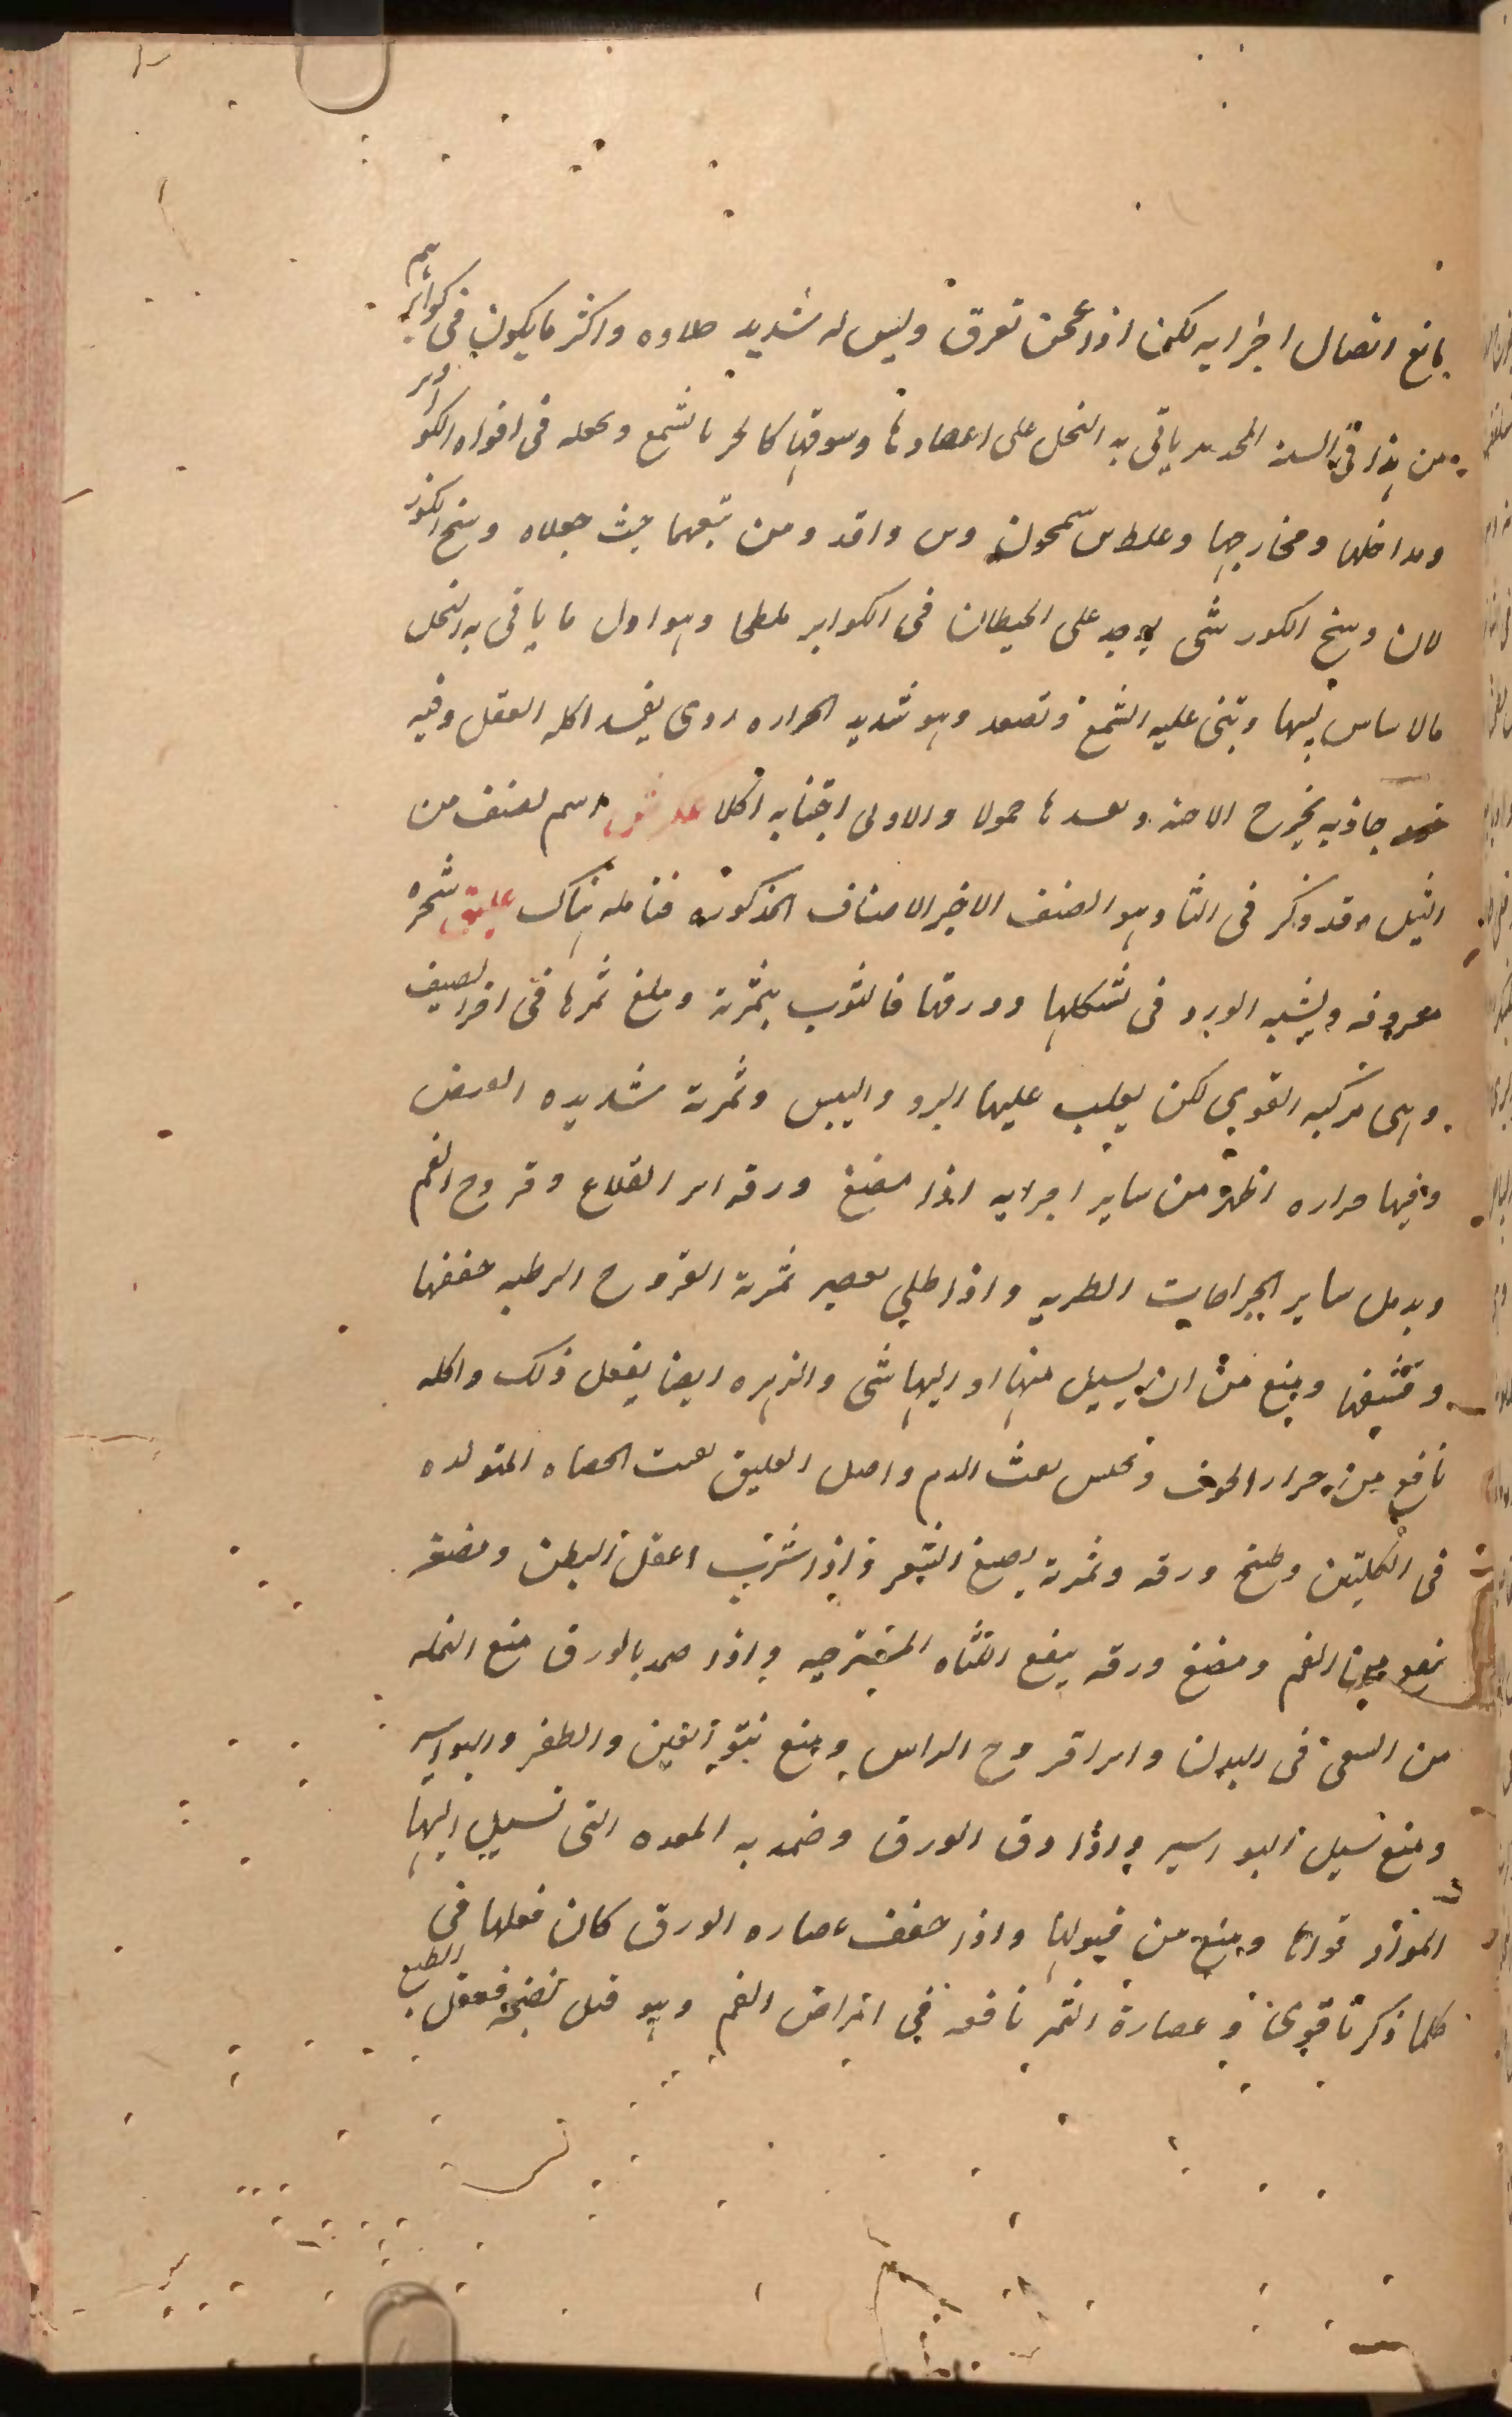 مانع اتصال اجزايه لكن اذا عجن تفرق وليس له شديد حلاوه واكثر ما يكون في كوايرهم
من هذا في السنه المجدبه ياتي به النحل على اعضادها وسوقها كالحر بالشمع وتجعله في افواه الكواير
ومداخلها ومخارجها وغلط بن سمحون وبن وافد ومن تبعهما حيث جعلاه وسخ الكور
لان وسخ الكور شي يوجد على الحيطان في الكواير ملطخا وهو اول ما ياتي به النحل
كالاساس لبيتها وتبنى عليه الشمع وتصعد وهو شديد الحراره ردي يفسد اكله العقل وفيه
جاذبه يخرج الاجنه ويفسدها حمولا والاولى اجتنابه اكلا عكرش اسم لصنف من
الثيل وقد ذكر في الثا وهو الصنف الاخير الاصناف المذكوره فتامله هناك عليق شجره
معروفه ويشبه الورد في شكلها وورقها فالتوب بثمرته وبلغ ثمرها في اخر الصيف
وهي مركبه القوي لكن يغلب عليها البرد واليبس وثمرته شديده القبض
وفيها حراره اظهر من ساير اجزايه اذا مضغ ورقه ابر القلاع وقروح الفم
ويدمل ساير الجراحات الطريه واذا طلي بعصير ثمرته القروح الرطبه جففها
ونشفها ومنع من ان يسيل منها او اليها شي والزهره ايضا يفعل ذلك واكله
نافع من حرار الجوف وتحبس نفث الدم واصل العليق تفتت الحصاه المتولده
في الكليتين وطبخ ورقه وثمرته يصبغ الشعر واذا شرب اعقل البطن ومضغه
نفع من الفم ومضغ ورقه ينفع اللثاه المتقرحه واذا ضمد بالورق منع النمله
من السعي في البدن وابرا قروح الراس ومنع نتو العين والظفر والبواسير
ومنع سيل البواسير واذا دق الورق وضمد به المعده التي تسيل اليها
المواد قواها ومنع من قبولها واذا جفف عصاره الورق كان فعلها في
كلما ذكرنا قوي وعصارة الثمر نافعه في امراض الفم وهو قبل نضجه فعقل الطبع